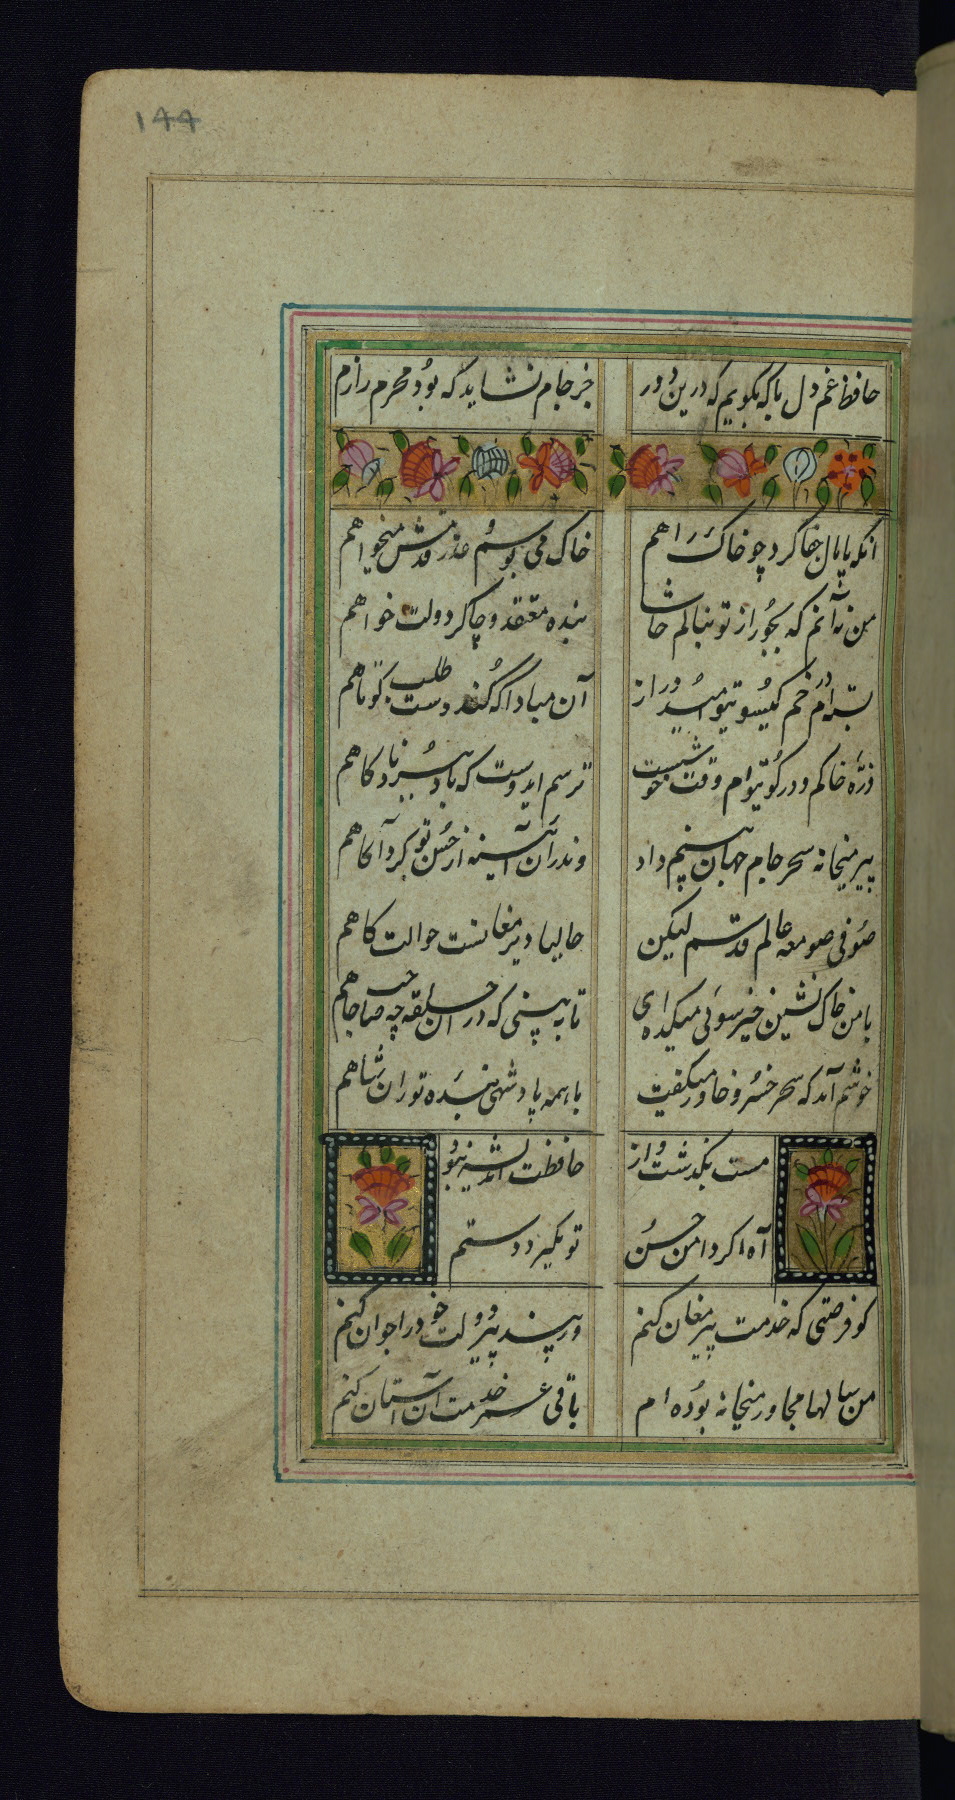 ۱۴۴
حافظ غم دل با که بگویم که درین دور
جز جام نشاید که بود محرم رازم
آنکه پامال جفا کرد چو خاک راهم
خاک می بوسم و عذر قدمش میخواهم
من نه آنم که بجور از تو بنالم حاشا
بنده معتقد و چاکر دولت خواهم
بسته ام در خم گیسوی تو امید دراز
آن مبادا که کند دست طلب کوتاهم
ذره خاکم و در کوی توام وقت خوشست
ترسم ایدوست که بادی ببرد ناگاهم
پیر میخانه سحر جام جهان بینم داد
وندران آینه از حسن تو کرد آگاهم
صوفی صومعه عالم قدسم لیکن
حالیا دیر مغانست حوالت گاهم
با من خاک نشین خیز سوی میکده ای
تا به بینی که در آن حلقه چه صاحب جاهم
خوشم آمد که سحر خسرو خاور میگفت
با همه پادشهی بنده توران شاهم
مست بگذشت و از
حافظت اندیشه نبود
آه اگر دامن حسن
تو بگیرد دستم
کو فرصتی که خدمت پیر مغان کنم
وز پند پیر دولت خود را جوان کنم
من سالها مجاور میخانه بوده ام
باقی عمر خدمت آن آستان کنم